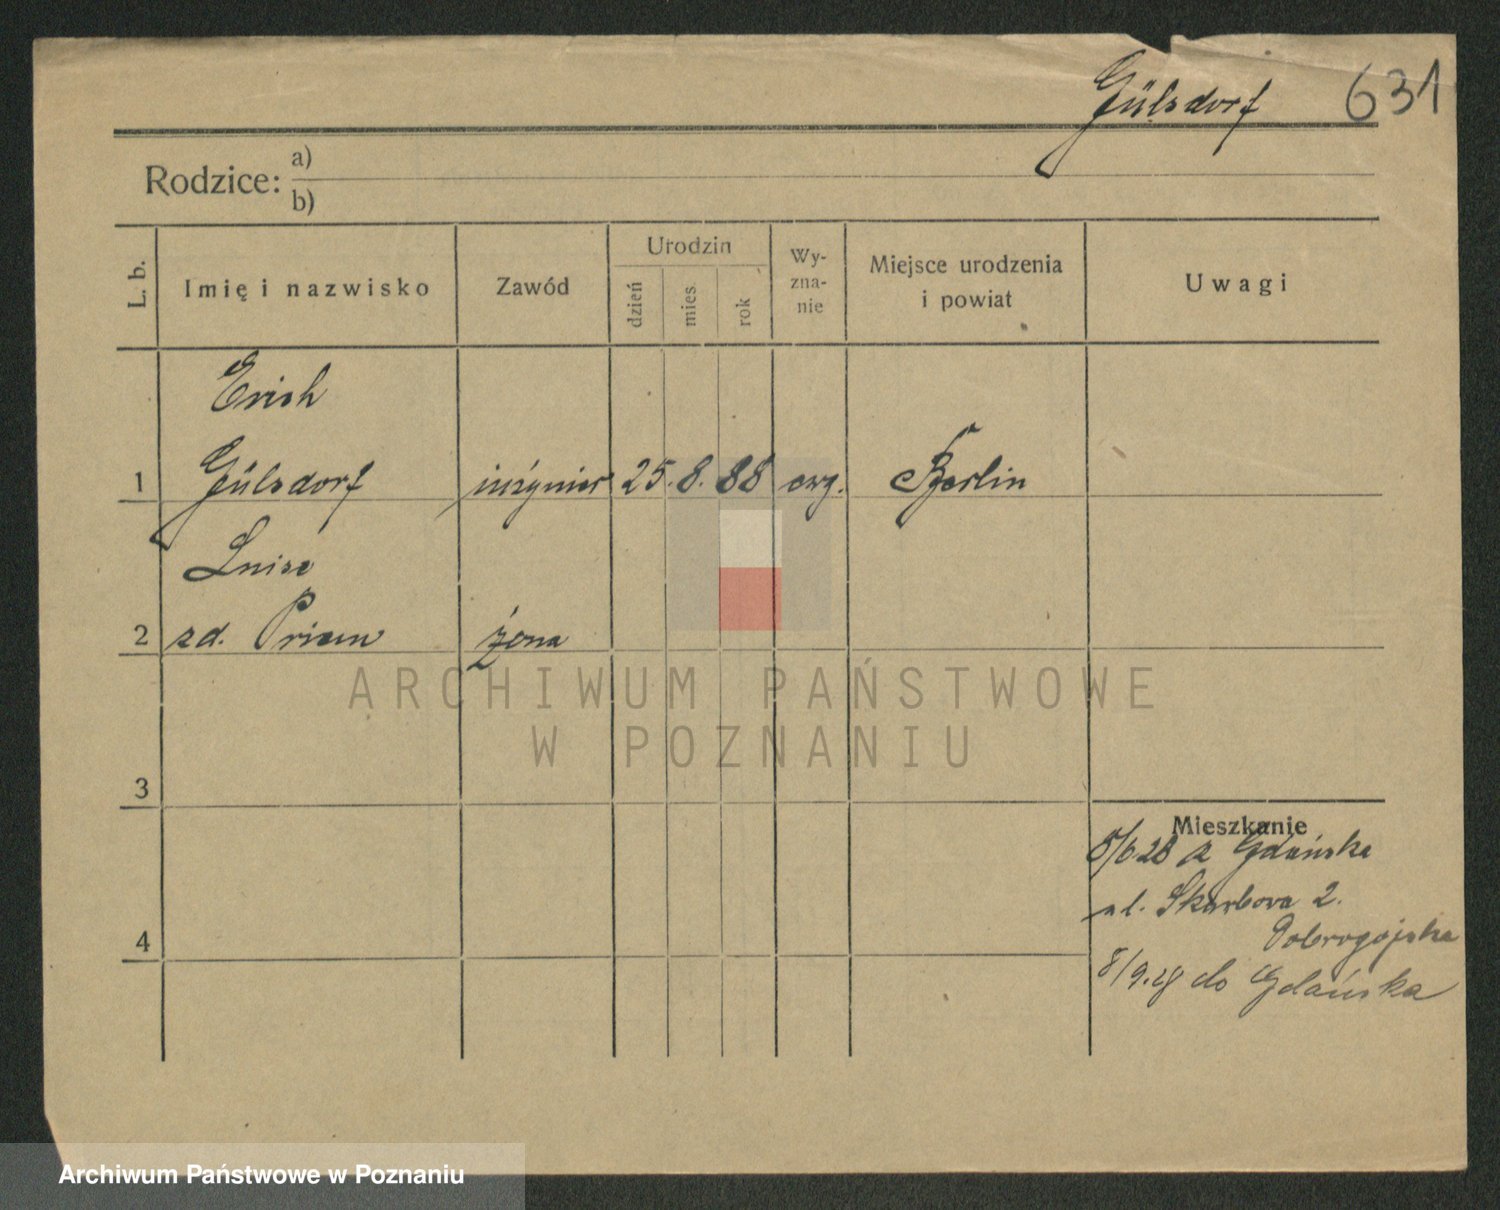 Gülsdorf 631
Rodzice: a)
b)
L. b. Imię i nazwisko Zawód Urodzin dzień mies. rok Wy-zna-nie Miejsce urodzenia i powiat Uwagi
Erich
1 Gülsdorf inżynier 25. 8. 88 ewg. Berlin
Luise
2 zd. Priem żona
ARCHIWUM PAŃSTWOWE
W POZNANIU
3
Mieszkanie
5/6.28 z Gdańska
ul. Skarbowa 2.
4
8/9.28 do Gdańska
Archiwum Państwowe w Poznaniu